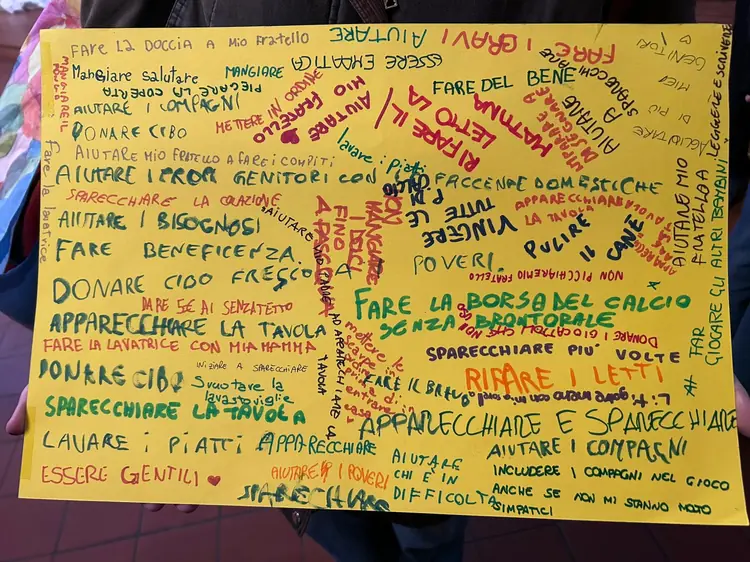 FARE LA DOCCIA A MIO FRATELLO
AIUTARE
I GRAVI
FARE
ESSERE EMPATICA
MANGIARE IL
Mangiare salutare
MANGIARE
PIEGARE LA COPERTA
AIUTARE I COMPAGNI
METTERE IN ORDINE
AIUTARE
MIO
FRATELLO
FARE DEL BENE
RIFARE IL
LETTO LA
MATTINA
IMPARARE A
DISEGNARE
AIUTARE A
SPARECCHIARE
GENITORI
MIEI
DI PIÙ
LEGGERE E SCRIVERE
DONARE CIBO
lavare i piatti
AIUTARE MIO FRATELLO A FARE I COMPITI
AIUTARE I PROPI GENITORI CON LE FACCENDE DOMESTICHE
Fare la lavatrice
SPARECCHIARE LA COLAZIONE
AIUTARE I BISOGNOSI
NON
MANGIARE
I DOLCI
FINO
A PASQUA
VINCERE
TUTTE LE
P. DI
CALCIO
APPARECCHIARE
LA TAVOLA
AIUTARE MIO
FRATELLO A
FAR
GIOCARE GLI ALTRI BAMBINI
FARE BENEFICENZA.
POVERI.
PULIRE
IL CANE
NON PICCHIARE MIO FRATELLO
DONARE CIBO FRESCO
DARE 5€ AI SENZATETTO
FARE LA BORSA DEL CALCIO
SENZA BRONTOLARE
APPARECCHIARE LA TAVOLA
DONARE I GIOCATTOLI CHE NON
FARE LA LAVATRICE CON MIA MAMMA
AD APPARECCHIARE LA
TAVOLA
mettere le
scarpe in
prima di
entrare in
casa
SPARECCHIARE PIU' VOLTE
INIZIARE A SPARECCHIARE
DONARE CIBO
Svuotare la
lavastoviglie
FARE IL BRAVO
RIFARE I LETTI
SPARECCHIARE LA TAVOLA
APPARECCHIARE E SPARECCHIARE
LAVARE I PIATTI
APPARECCHIARE
AIUTARE I COMPAGNI
ESSERE GENTILI
AIUTARE I POVERI
AIUTARE
CHI È IN
DIFFICOLTA
INCLUDERE I COMPAGNI NEL GIOCO
ANCHE SE NON MI STANNO MOLTO
SIMPATICI
SPARECCHIARE